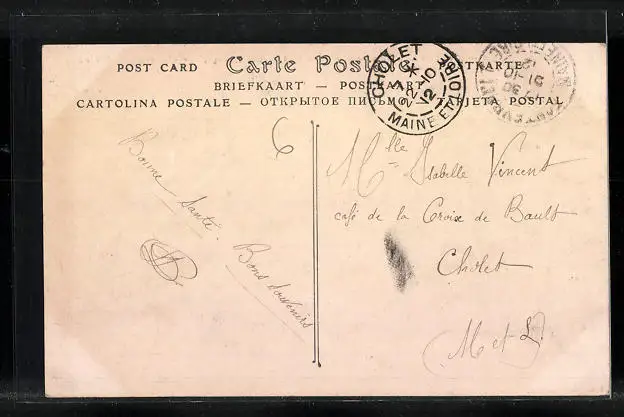 POST CARD Carte Postale POSTKARTE
BRIEFKAART — POSTKAART
CARTOLINA POSTALE — ОТКРЫТОЕ ПИСЬМО — TARJETA POSTAL
CHOLET
MAINE ET LOIRE
6
Bonne Santé.
Bons Souvenirs
Mlle Isabelle Vincent
café de la Croix de Bault
Cholet
M et L